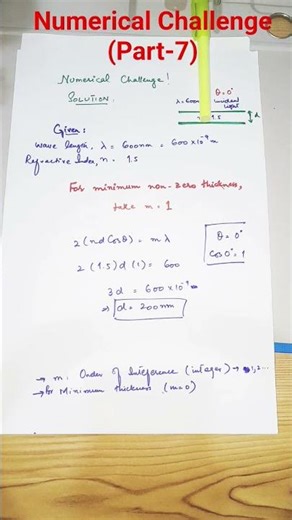 Numerical Challenge
(Part-7)
Numerical Challenge!
Solution:
θ = 0°
λ = 600nm incident
light
1.5
d
Given:
Wave length, λ = 600nm = 600 x 10⁻⁹ m
Refractive Index, n = 1.5
For minimum non-zero thickness,
take m = 1
2(nd Cosθ) = mλ
θ = 0°
Cos 0° = 1
2 (1.5) d (1) = 600
3d = 600 x 10⁻⁹
⇒ d = 200nm
→ m: Order of Inteference (integer) → 1, 2 ...
→ for Minimum thickness (m=0)